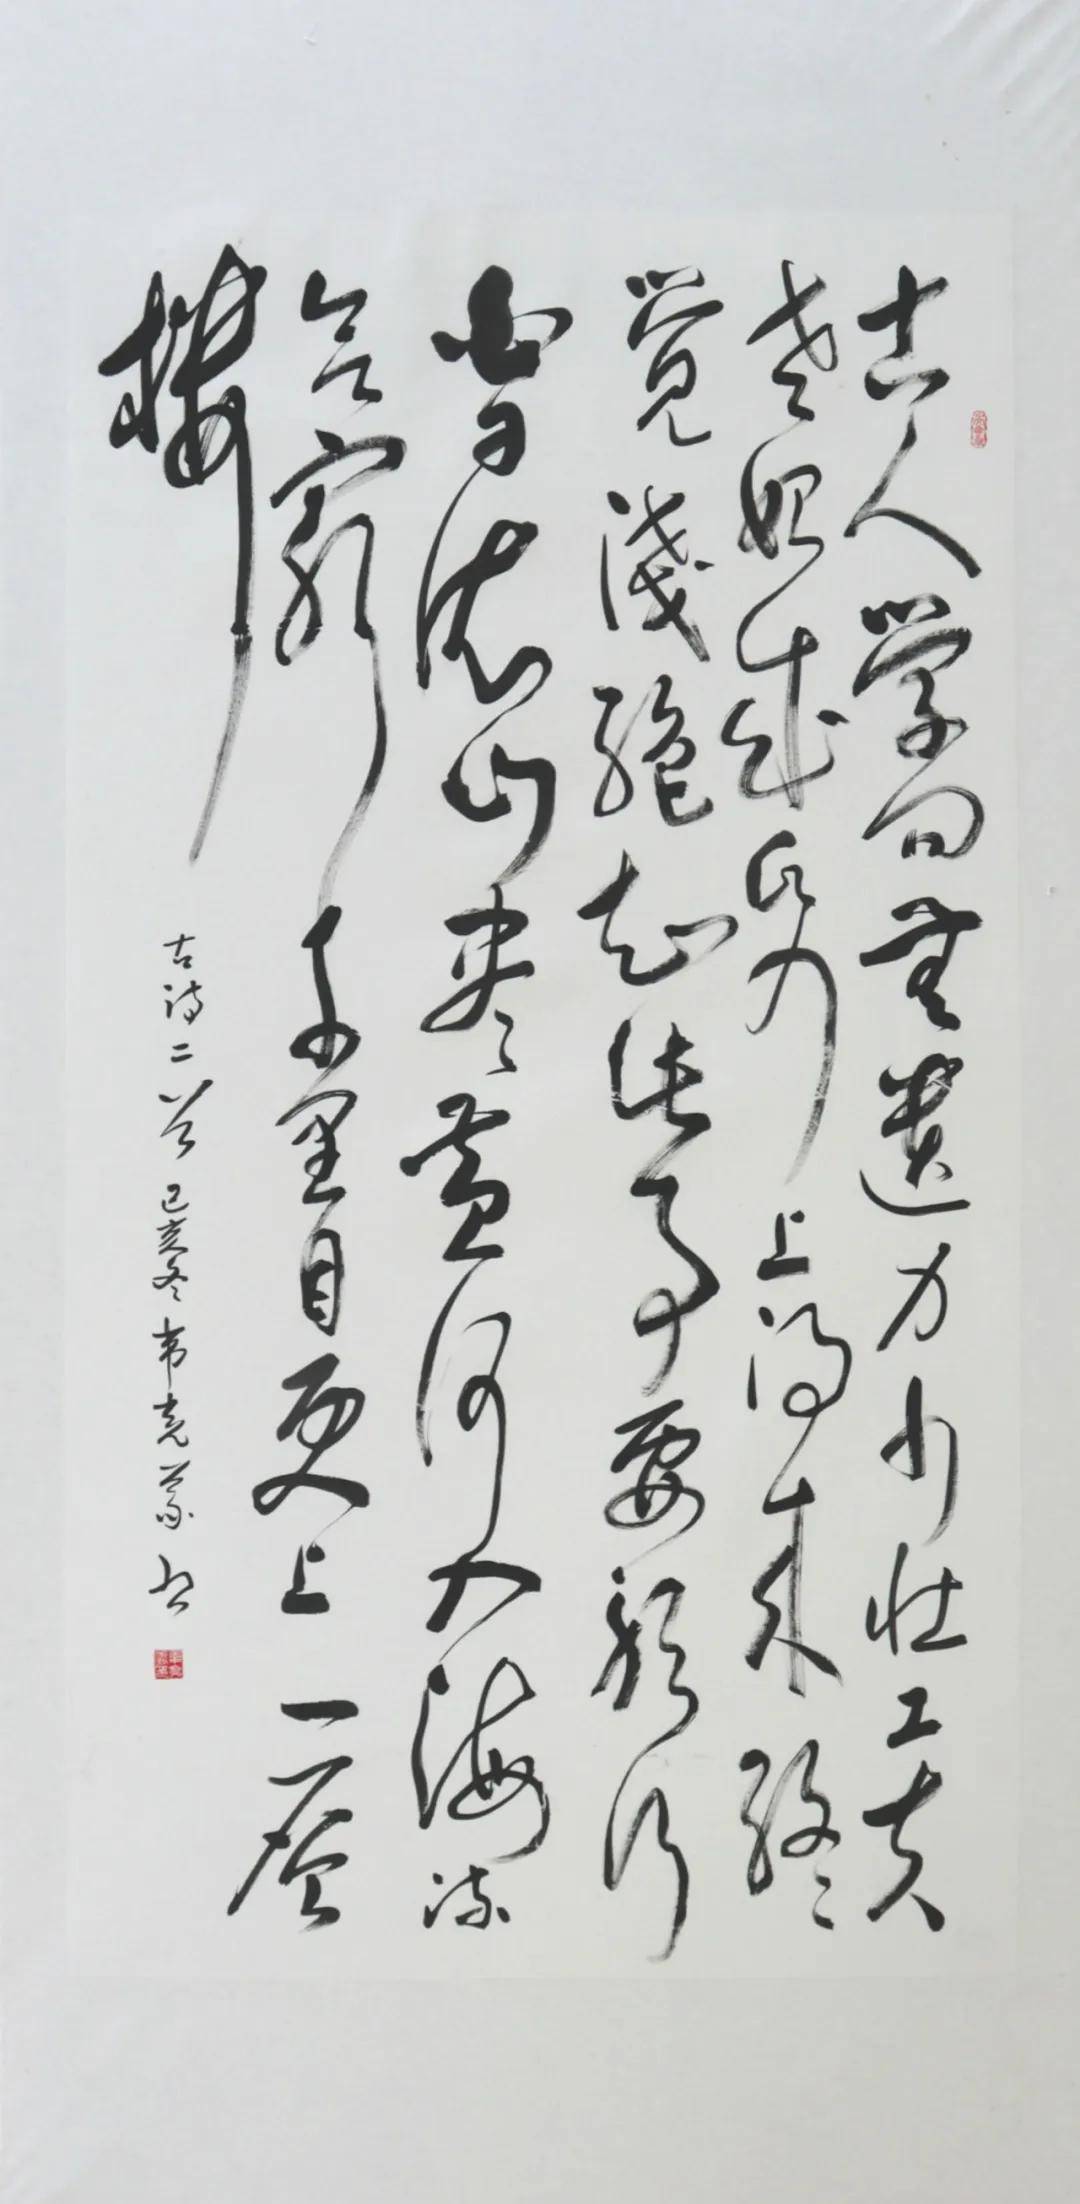 古人学问無遺力少壮工夫
老始成纸上得来终
觉淺絶知此事要躬行
白日依山尽黄河入海流
欲窮千里目更上一层
楼
古诗二首 己亥冬 韦克義 书